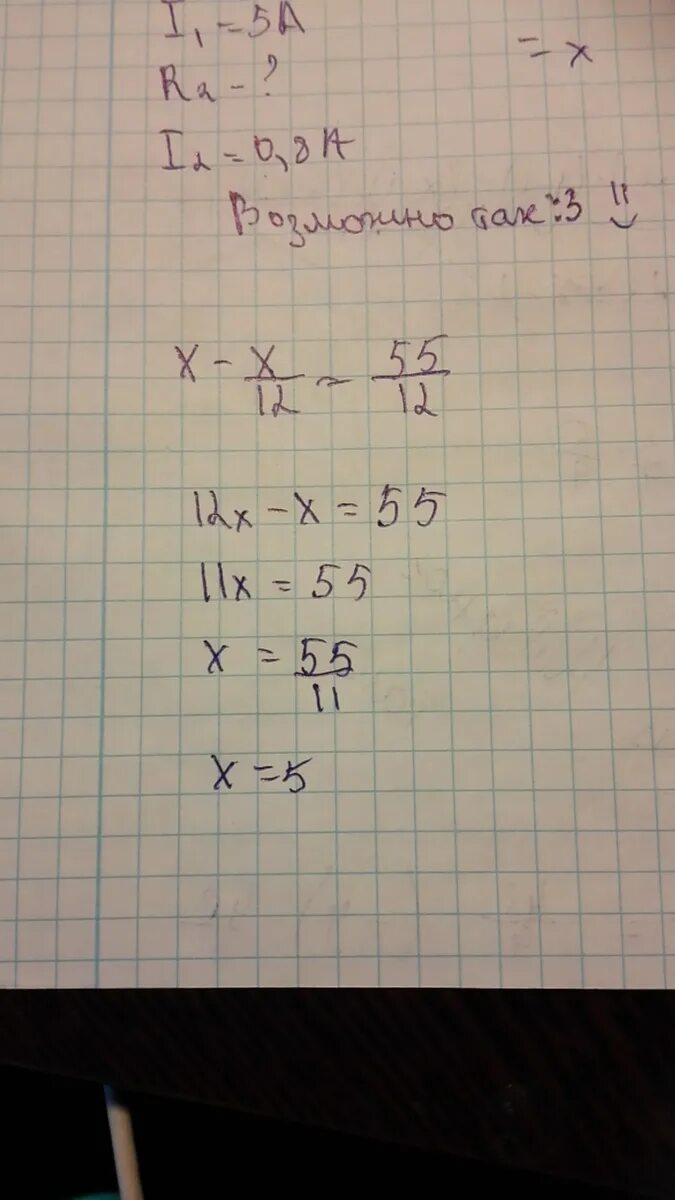 I₁ = 5A
= x
R₂ - ?
I₂ = 0,8A
Возможно так :3 !!
x - x/12 = 55/12
12x - x = 55
11x = 55
x = 55/11
x = 5